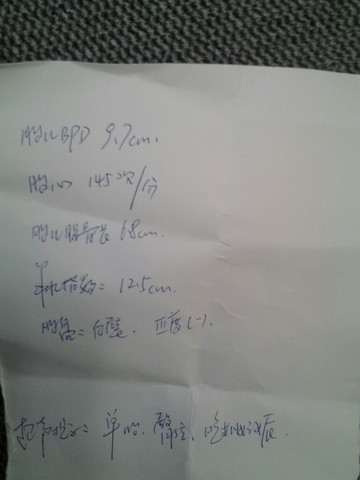 胎儿BPD 9.7cm.
胎心 145次/分
胎儿股骨长 6.8cm.
羊水指数= 12.5cm.
胎盘=后壁. Ⅲ度(-).
超声提示: 单胎. 臀位.